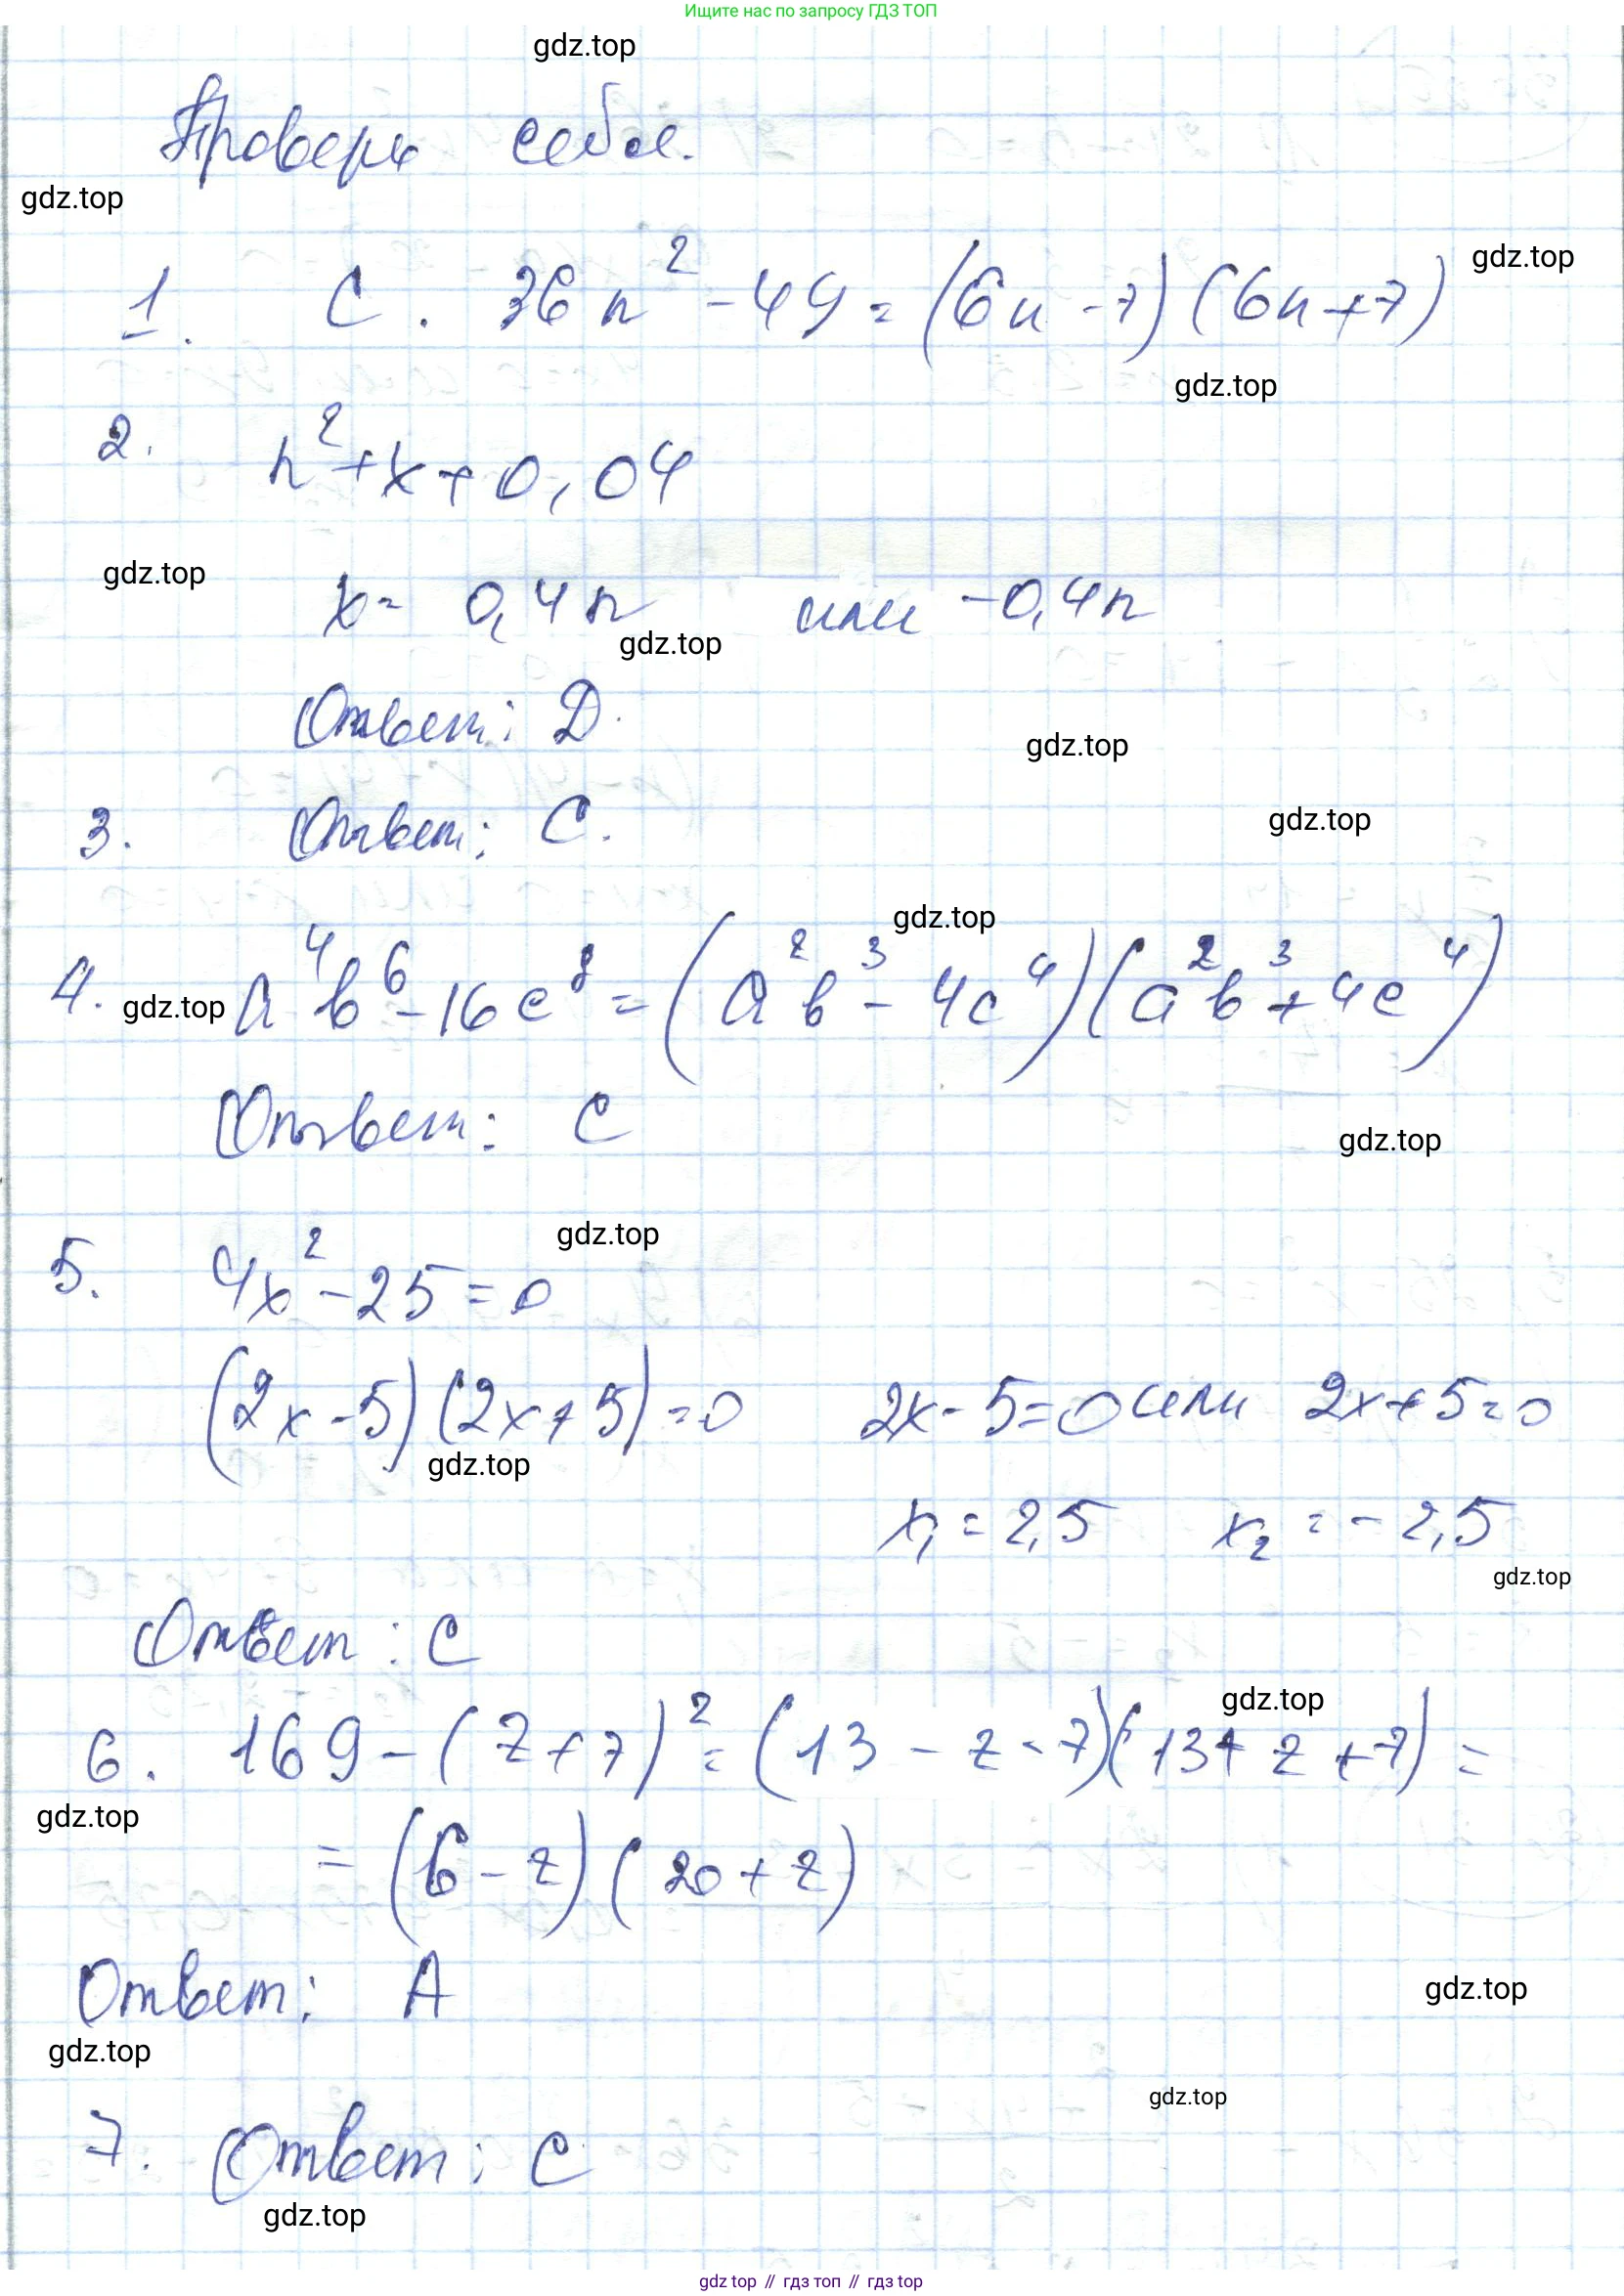 Ищите нас по запросу ГДЗ ТОП
gdz.top
Проверь себя.
gdz.top
1. C. 36n² - 49 = (6n - 7)(6n + 7)
gdz.top
gdz.top
2. n² + x + 0,04
gdz.top
x = 0,4n или -0,4n
gdz.top
Ответ: D.
gdz.top
3. Ответ: C.
gdz.top
gdz.top
4. a⁴b⁶ - 16c⁸ = (a²b³ - 4c⁴)(a²b³ + 4c⁴)
gdz.top
Ответ: C
gdz.top
gdz.top
5. 4x² - 25 = 0
(2x - 5)(2x + 5) = 0 2x - 5 = 0 или 2x + 5 = 0
gdz.top
x₁ = 2,5 x₂ = -2,5
gdz.top
Ответ: C
gdz.top
6. 169 - (z + 7)² = (13 - z - 7)(13 + z + 7) =
gdz.top
= (6 - z)(20 + z)
Ответ: A
gdz.top
gdz.top
gdz.top
7. Ответ: C
gdz.top
gdz top // гдз топ // гдз top